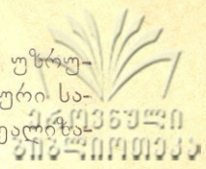 უზრუ-
ური სა-
ეალიზა-
ეროვნული
ბიბლიოთეკა